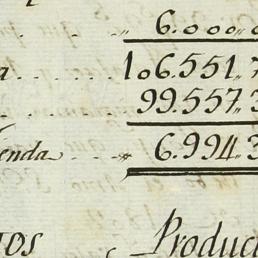 6.000.0
a 106.551,7
99.557,3
enda 6.994.3
ios Produc